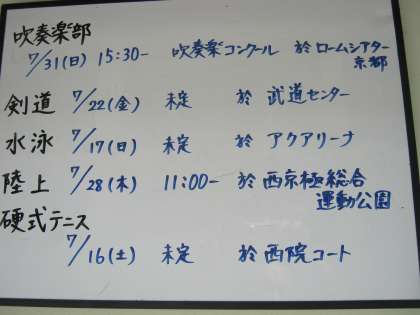 吹奏楽部
7/31(日) 15:30- 吹奏楽コンクール 於 ロームシアター
京都
剣道 7/22(金) 未定 於 武道センター
水泳 7/17(日) 未定 於 アクアリーナ
陸上 7/28(木) 11:00- 於 西京極総合
運動公園
硬式テニス
7/16(土) 未定 於 西院コート